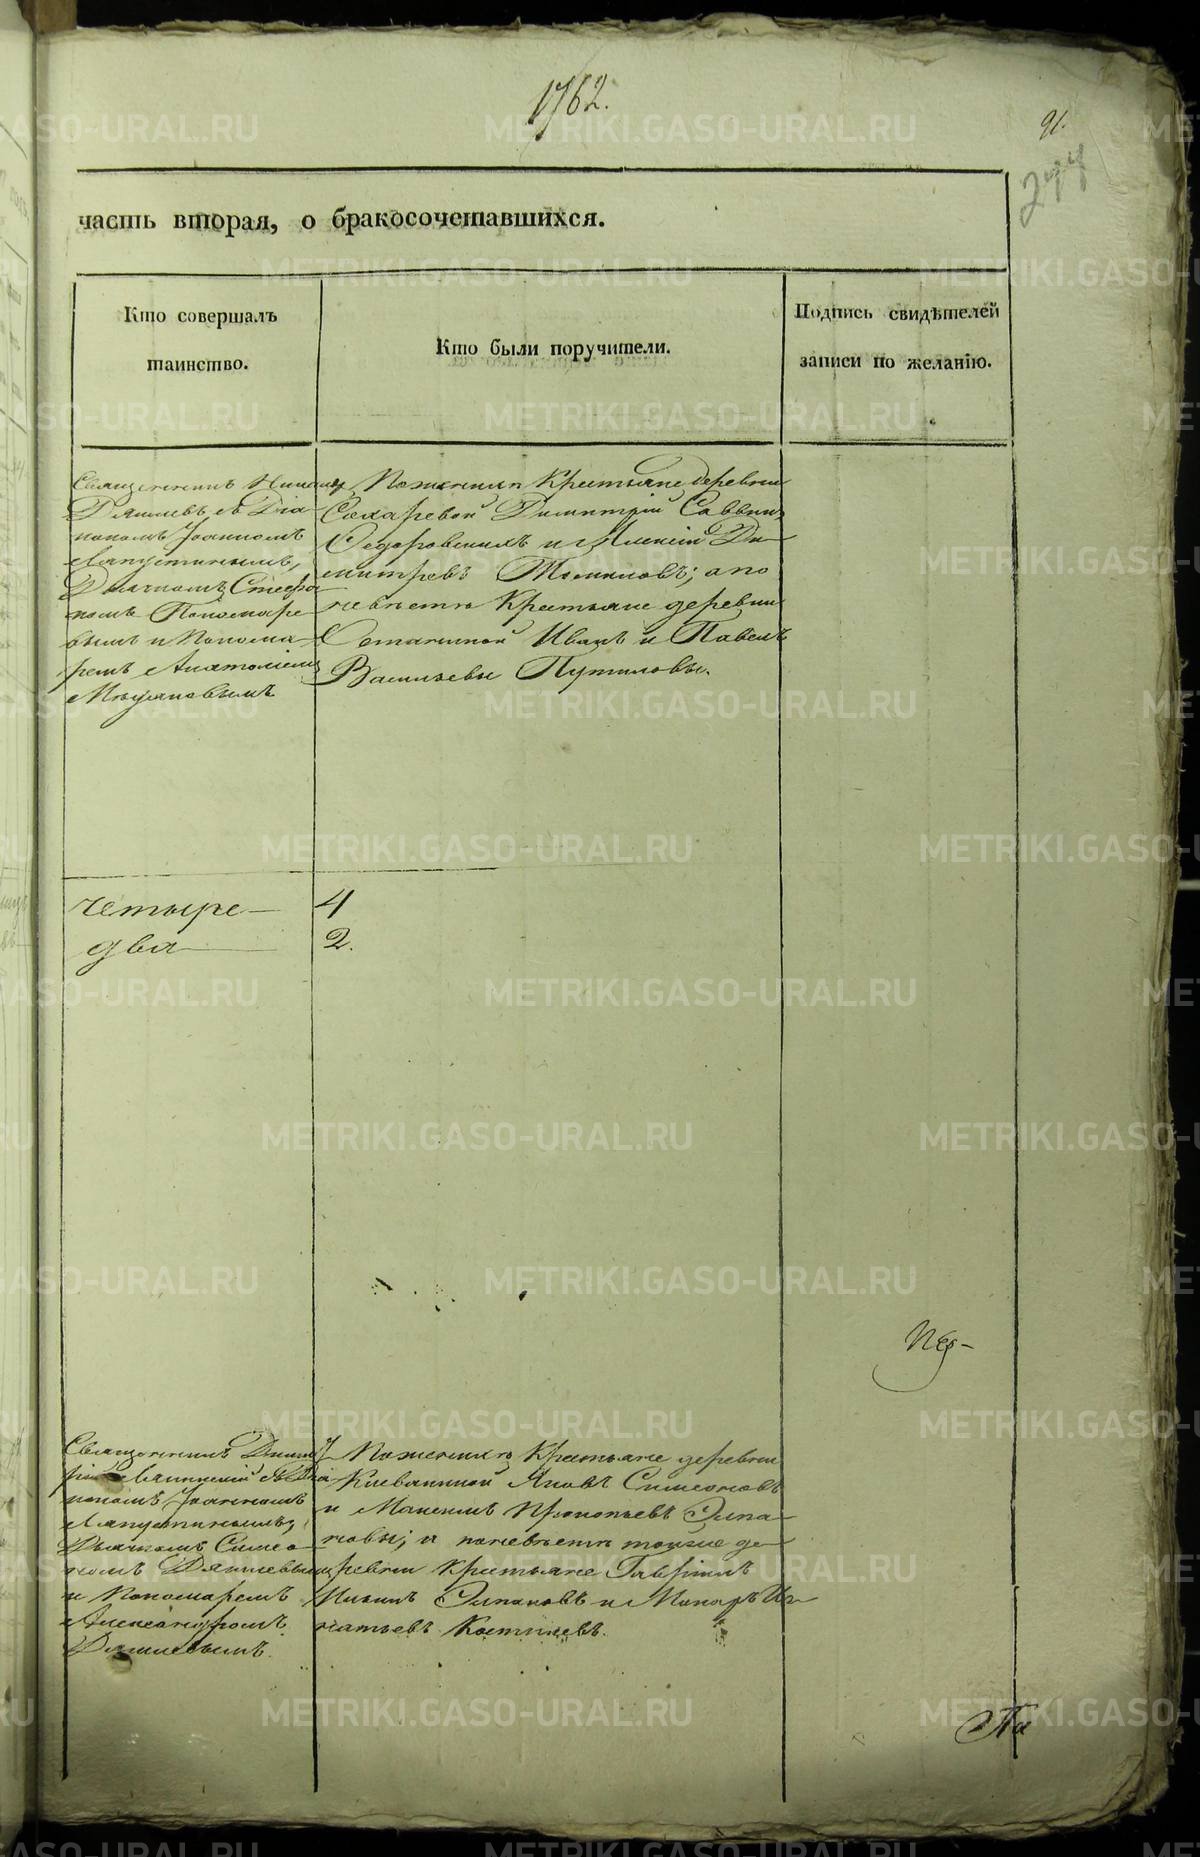 1762.
91.
часть вторая, о бракосочетавшихся.
Кто совершалъ
таинство.
Кто были поручители.
Подпись свидѣтелей
записи по желанію.
Священникъ
съ Діа-
кономъ Іоанномъ
Лапустинымъ,
Дьячкомъ Стефа-
номъ Пономаре-
вымъ и Понома-
ремъ Анатоліемъ
По женихѣ Крестьяне деревни
Сахаревой Димитрій Саввинъ
Сидоровскихъ и Алексій Ди-
митревъ; а по
невѣстѣ Крестьяне деревни
Иванъ и Павелъ
Васильевы Путиловы.
четыре 4
два 2.
Священникъ Димит-
рій съ Діа-
кономъ Іоанномъ
Лапустинымъ,
Дьячкомъ Симео-
номъ Дягилевымъ
и Пономаремъ
Александромъ
Дягилевымъ.
По женихѣ Крестьяне деревни
Яковъ Симеоновъ
и Максимъ Прокопьевъ
; а по невѣстѣ тойже де-
ревни Крестьяне Гавріилъ
и Макаръ Иг-
натьевъ Костылевъ.
METRIKI.GASO-URAL.RU